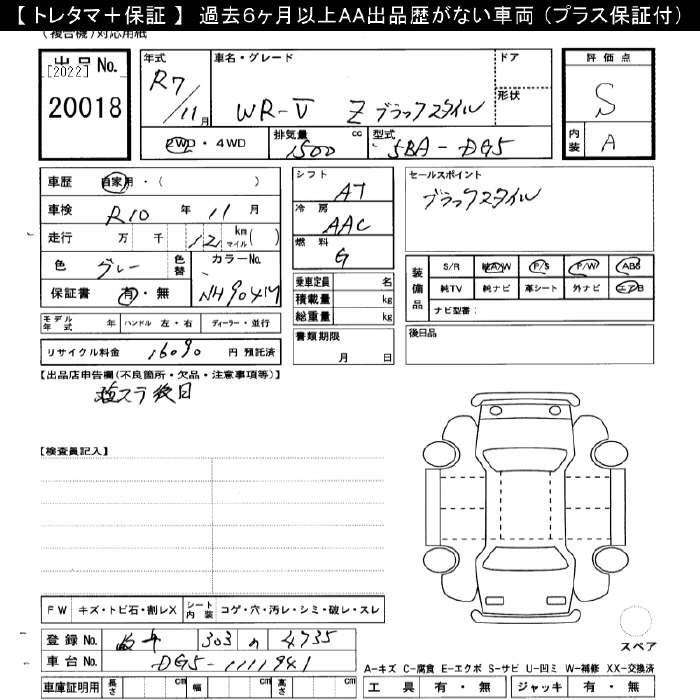 【 トレタマ＋保証 】 過去６ヶ月以上ＡＡ出品歴がない車両 (プラス保証付)
(複合機)対応用紙
出品 No.
[2022]
20018
年式 R7/11月
車名・グレード WR-V Z ブラックスタイル
ドア
形状
2WD ・ 4WD
排気量 1500 cc
型式 5BA-DG5
評価点 S
内装 A
車歴 自家用・( )
車検 R10 年 11 月
走行 万 千 12 km マイル( )
色 グレー 色替
カラーNo. NH904M
保証書 有・無
モデル年式 年 ハンドル 左・右 ディーラー・並行
リサイクル料金 16090 円 預託済
シフト AT
冷房 AAC
燃料 G
乗車定員 名
積載量 kg
総重量 kg
書類期限
月 日
セールスポイント
ブラックスタイル
装備品
S/R 純A/W P/S P/W ABS
純TV 純ナビ 革シート 外ナビ エアB
ナビ型番:
後日品
【出品店申告欄(不良箇所・欠品・注意事項等)】
後日
【検査員記入】
FW キズ・トビ石・割レX シート内装 コゲ・穴・汚レ・シミ・破レ・スレ
登録 No. 岐阜 303 の 4735
車台 No. DG5-1111941
車庫証明用 長さ cm 幅 cm 高さ cm
スペア
A-キズ C-腐食 E-エクボ S-サビ U-凹ミ W-補修 XX-交換済
工具 有・無 ジャッキ 有・無